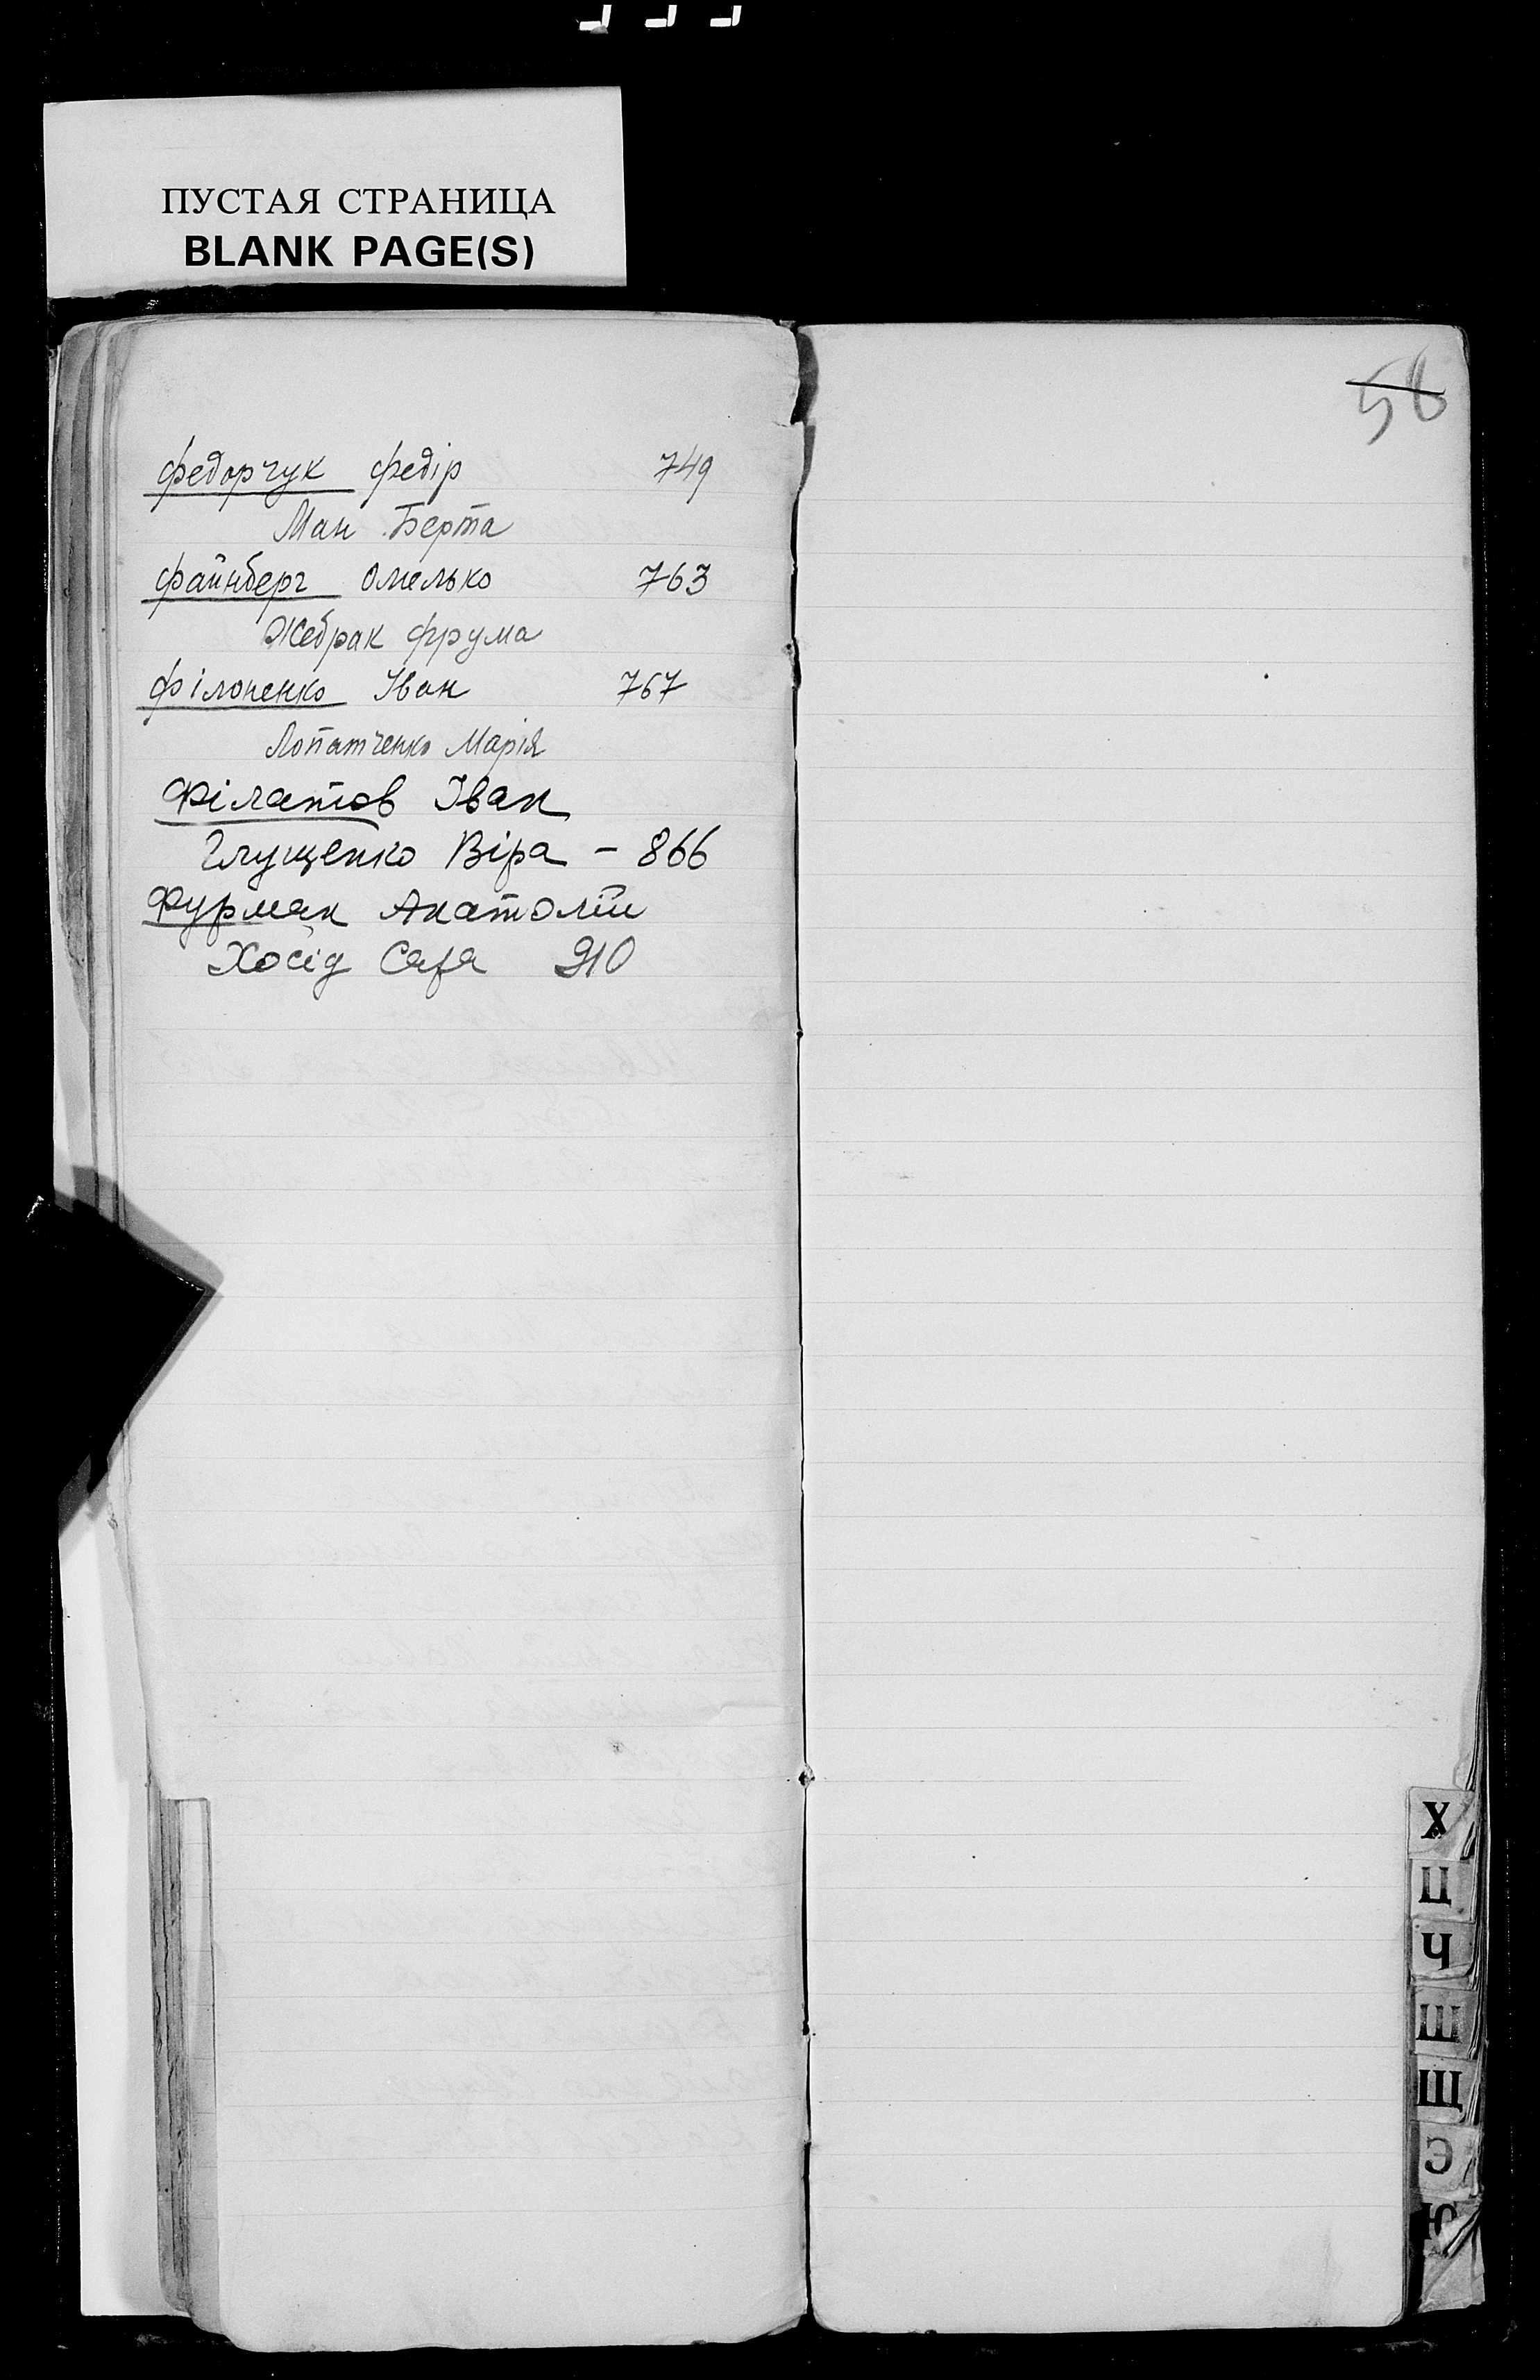 ПУСТАЯ СТРАНИЦА
BLANK PAGE(S)
Федорчук Федір 749
Ман Берта
Файнберг Омелько 763
Жебрак Фрума
Філоненко Іван 767
Лопатченко Марія
Філатов Іван
Глущенко Віра – 866
Фурман Анатолій
Хосід Сара 910
58
Х
Ц
Ч
Ш
Щ
Э
Ю